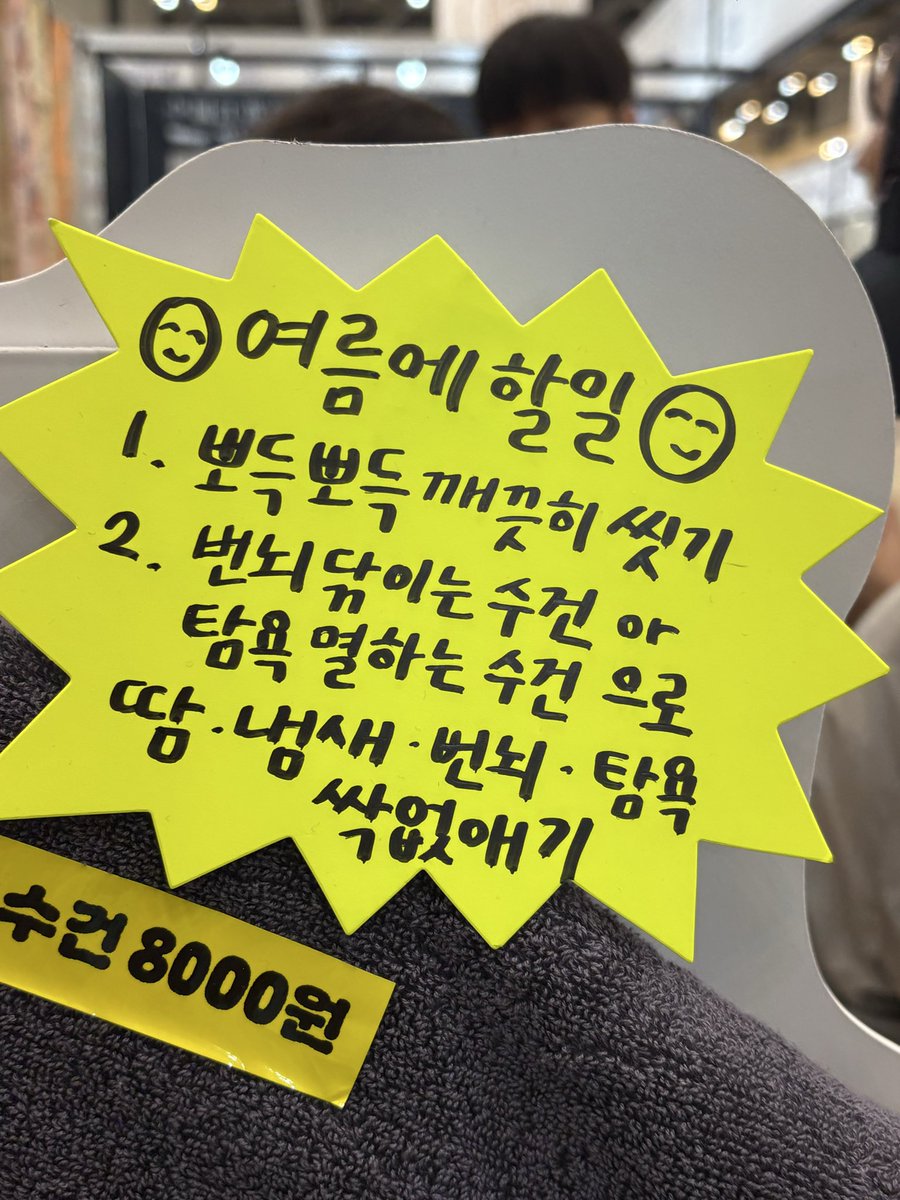 여름에 할일
1. 뽀득뽀득 깨끗히 씻기
2. 번뇌 닦이는 수건 아
탐욕 멸하는 수건 으로
땀·냄새·번뇌·탐욕
싹없애기
수건 8000원